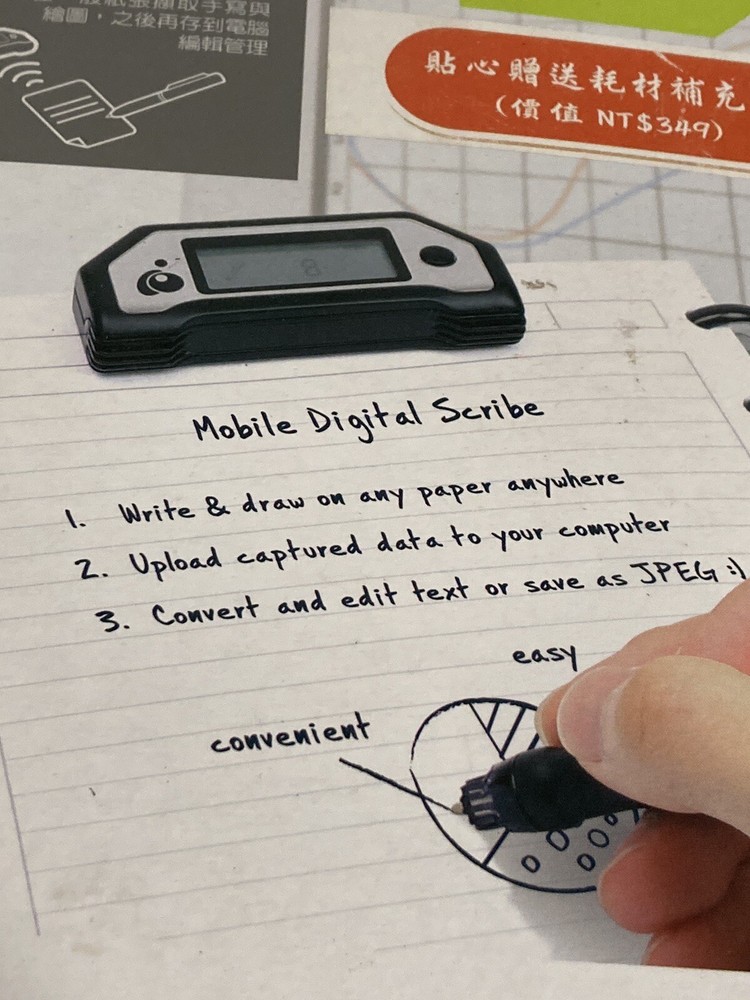 般紙張擷取手寫與
繪圖，之後再存到電腦
編輯管理
貼心贈送耗材補充
(價值 NT$349)
8
Mobile Digital Scribe
1. Write & draw on any paper anywhere
2. Upload captured data to your computer
3. Convert and edit text or save as JPEG :)
easy
convenient